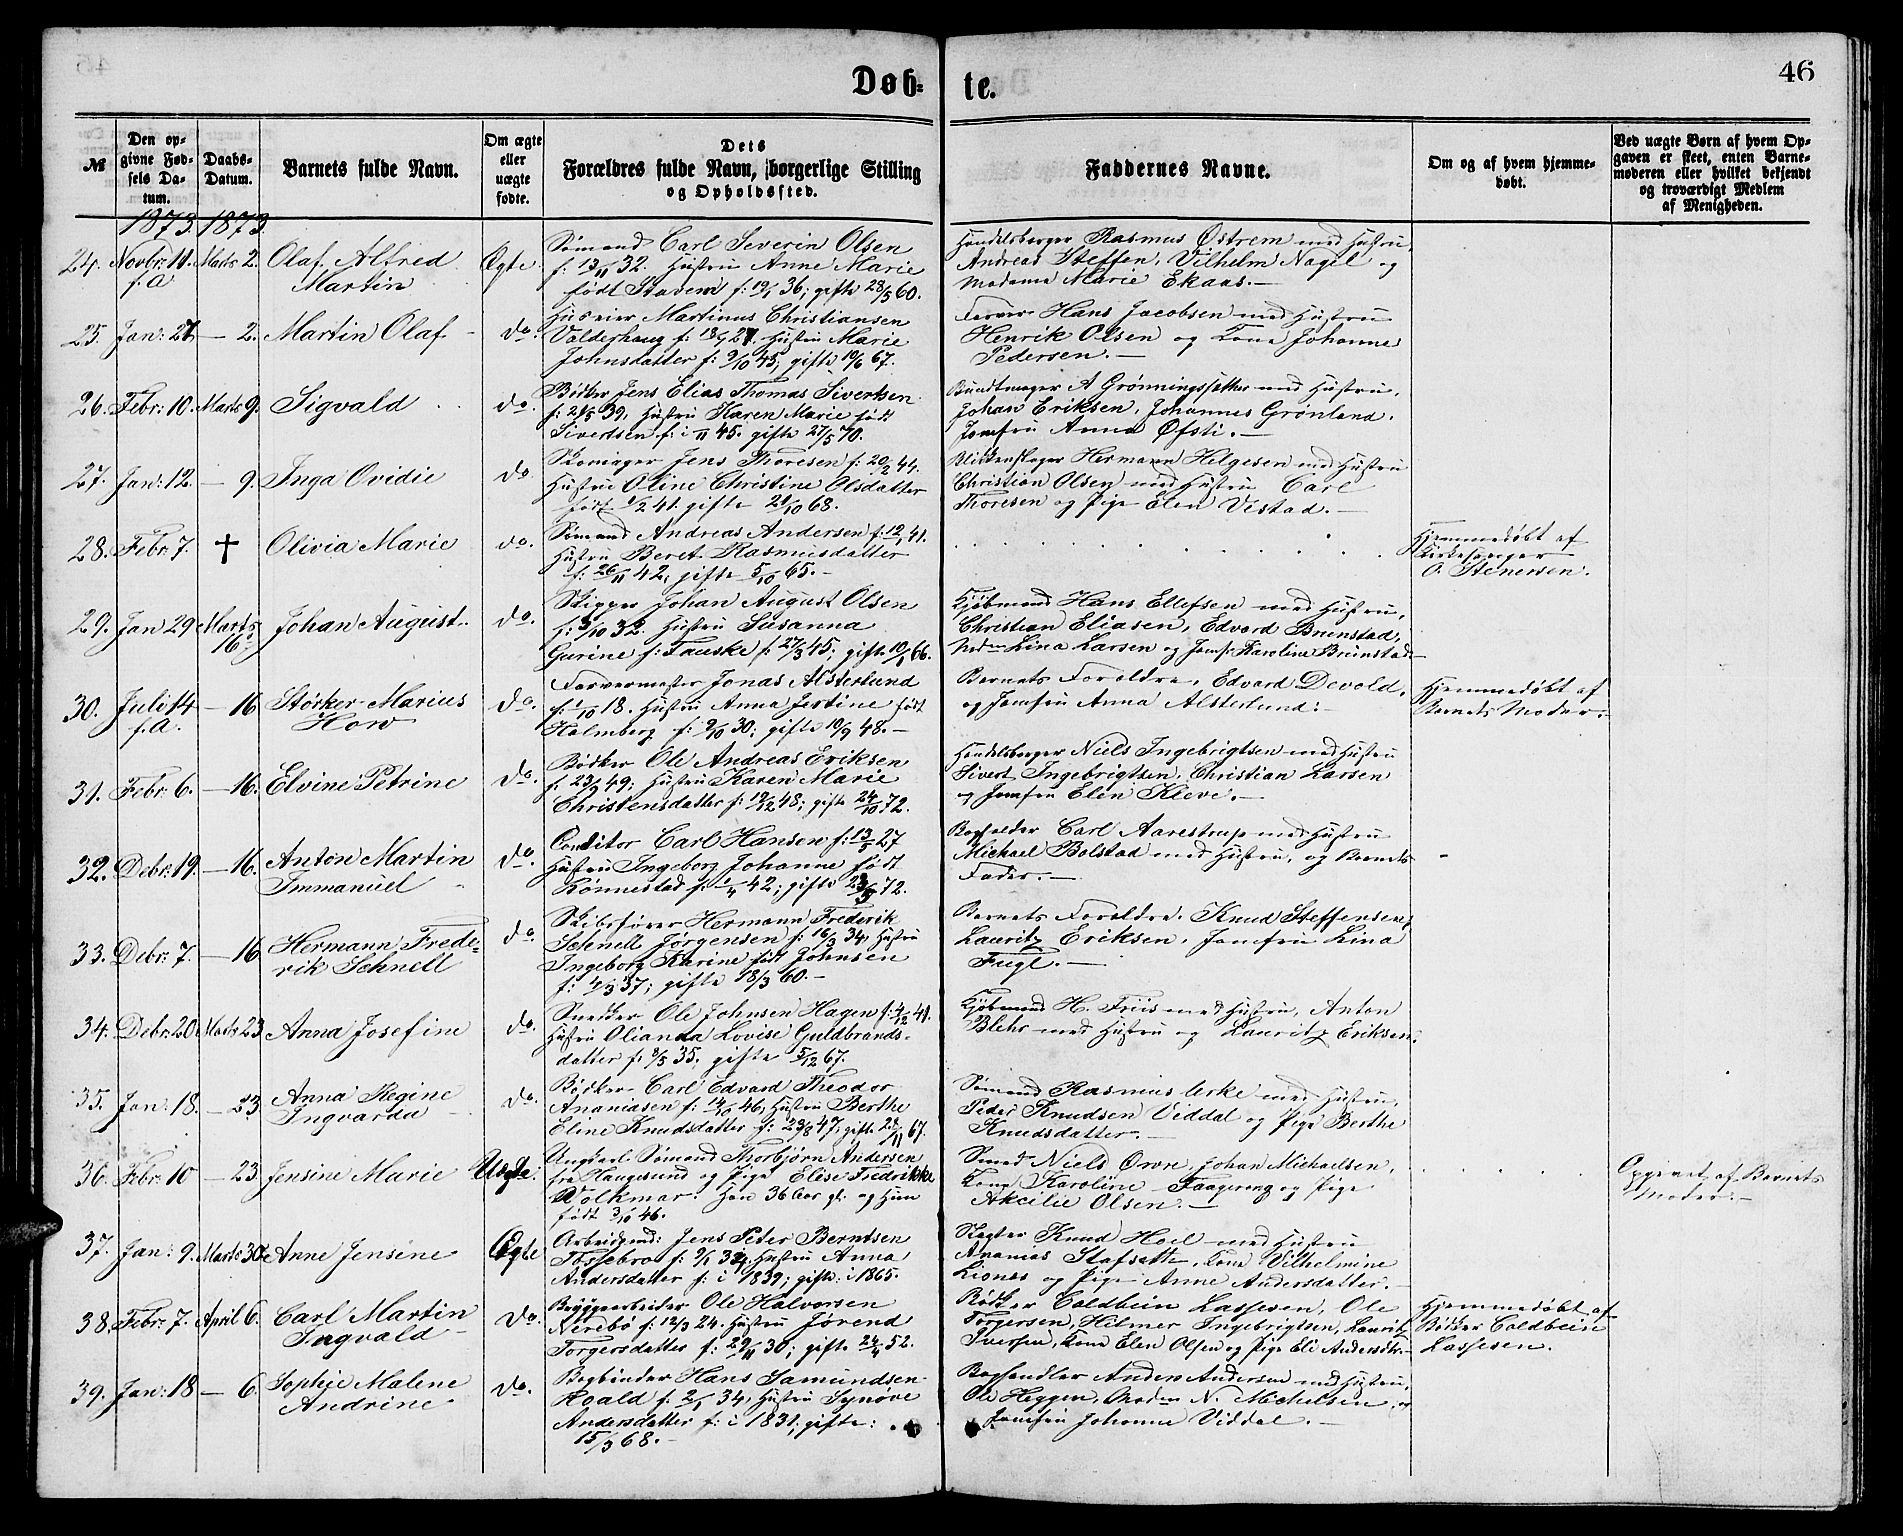 46
Døb- te.
№
Den opgivne Fødsels Datum.
Daabs-Datum.
Barnets fulde Navn.
Om ægte eller uægte fødte.
Dets Forældres fulde Navn, borgerlige Stilling og Opholdssted.
Faddernes Navne.
Om og af hvem hjemmedøbt.
Ved uægte Børn af hvem Opgaven er skeet, enten Barnemoderen eller hvilket bekjendt og troværdigt Medlem af Menigheden.
1873. 1873.
24. Novbr: 11. f. A. Marts 2. Olaf Alfred Martin Ægte.
Sømand Carl Severin Olsen
f: 13/11 32. Hustru Anne Marie
født Stavem f: 19/1 36; gifte 28/5 60.
Handelsborger Rasmus Østrem med Hustru
Andreas Steffen, Vilhelm Nagel og
Madame Marie Ekaas.
25. Jan: 27 — 2. Martin Olaf do.
Huseier Martinus Christiansen
Valderhaug f: 13/7 27. Hustru Marie
Johnsdatter f: 9/10 45; gifte 19/6 67.
Farver Hans Jacobsen med Hustru
Henrik Olsen og Kone Johanne
Pedersen.
26. Febr: 10. Marts 9. Sigvald do.
Bødker Jens Elias Thomas Sivertsen
39, Hustru Karen Marie født
Sivertsen f: i 11 45. gifte 27/5 70.
Bundtmager A Grønningssætter med Hustru,
Johan Eriksen, Johannes Grønland,
Jomfru Anna Øfsti.
27. Jan: 12. — 9. Inga Ovidie do
Skomager Jens Thoresen f: 20/2 44.
Hustru Oline Christine Olsdatter
født 1/2 41. gifte 21/10 68.
Blikkenslager Hermann Helgesen med Hustru
Christian Olsen med Hustru Carl
Thoresen og Pige Elen Vestad.
28. Febr 7. † Olivia Marie do.
Sømand Andreas Andersen f: 12/1 41.
Hustru Beret Rasmusdatter
f: 26/11 42, gifte 5/10 65.
Hjemmedøbt af
Kirkesanger
O. Stenersen.
29. Jan 29 Marts 16 Johan August do.
Skipper Johan August Olsen
f: 3/10 32. Hustru Susanna
Gurine f: Fauske f: 27/3 45; gifte 19/1 66.
Kjøbmand Hans Ellefsen med Hustru,
Christian Eliasen, Edvard Brunstad,
Mad. Lina Larsen og Jomfr Karoline Brunstad
30. Juli 14 f. A. — 16 Størker Marius How do.
Farvermester Jonas Alsterlund
f. 1/10 18. Hustru Anna Jertine født
Holmberg f: 9/10 30; gifte 19/9 48.
Barnets Forældre, Edvard Devold,
og Jomfru Anna Alsterlund.
Hjemmedøbt af
Barnets Moder.
31. Febr 6. — 16. Elvine Petrine do.
Bødker Ole Andreas Eriksen
f. 23/9 49; Hustru Karen Marie
Christensdatter f: 19/12 48; gifte 24/10 72.
Handelsborger Niels Ingebrigtsen med Hustru
Sivert Ingebrigtsen, Christian Larsen
og Jomfru Elen Kleve.
32. Debr: 19. — 16. Anton Martin Immanuel do.
Conditor Carl Hansen f: 13/5 27
Hustru Ingeborg Johanne født
Rønnestad f: 1/4 42; gifte 72.
Bogholder Carl Aarestrup med Hustru
Michael Bolstad med Hustru, og Barnets
Fader.
33. Debr: 7. — 16 Hermann Frederik Schnell do
Skibsfører Hermann Frederik
Schnell Jørgensen f: 16/3 34, Hustru
Ingeborg Karine født Johnsen
f: 4/3 37; gifte 18/3 60.
Barnets Forældre, Knud Steffensen,
Lauritz Eriksen, Jomfru Lina
Fugl.
34. Debr: 20 Marts 23 Anna Josefine do.
Snedker Ole Johnsen Hagen f: 4/12 41.
Hustru Olianna Lovise Guldbrands-
datter f: 8/5 35; gifte 5/12 67.
Kjøbmand H. Friis med Hustru, Anton
Blehr med Hustru og Lauritz Eriksen.
35. Jan: 18. — 23 Anna Regine Ingvarda do.
Bødker Carl Edvard Theodor
Ananiasen f: 14/10 46, Hustru Berthe
Eline Knudsdatter f: 23/8 47; gifte 67.
Sømand Rasmus Lerke med Hustru,
Peder Knudsen Viddal og Pige Berthe
Knudsdatter.
36. Febr: 10 — 23. Jensine Marie Uægte.
Ungkarl Sømand Thorbjørn Andersen
fra Haugesund og Pige Elise Fredrikke
Wolkmar. Han 36 Aar gl. og Hun
født 3/10 46.
Smed Niels Orvre, Johan Michaelsen,
Kone Karoline Faagerang og Pige
Akcilie Olsen.
Opgivet af Barnets
Moder.
37. Jan: 9. Marts 30te Anne Jensine Ægte
Arbeidsmd: Jens Peter Berntsen
Fossebro f: 9/1 39, Hustru Anna
Andersdatter f: i 1839; gifte i 1865.
Slagter Knud Hoel med Hustru
Ananias Stafsæth, Kone Vilhelmine
Lianes og Pige Anne Andersdatter.
38. Febr: 7. April 6. Carl Martin Ingvald do.
Bryggearbeider Ole Halvorsen
Nerebø f: 12/3 24. Hustru Jørend
Torgersdatter f: 29/11 30; gifte 24/4 52.
Bødker Coldbein Lassesen, Ole
Torgersen, Hilmer Ingebrigtsen, Lauritz
Iversen, Kone Elen Olsen og Pige Eli Andersdtr.
Hjemmedøbt af
Bødker Coldbein
Lassesen.
39. Jan: 18 — 6. Sophie Malene Andrine do.
Bogbinder Hans Samundsen
Hoald f: 2/1 34, Hustru Synøve
Andersdatter f: i 1831; gifte:
15/3 68.
Boghandler Anders Andersen med Hustru,
Ole Heggen, Madm N. Michelsen, og
Jomfru Johanne Viddal.